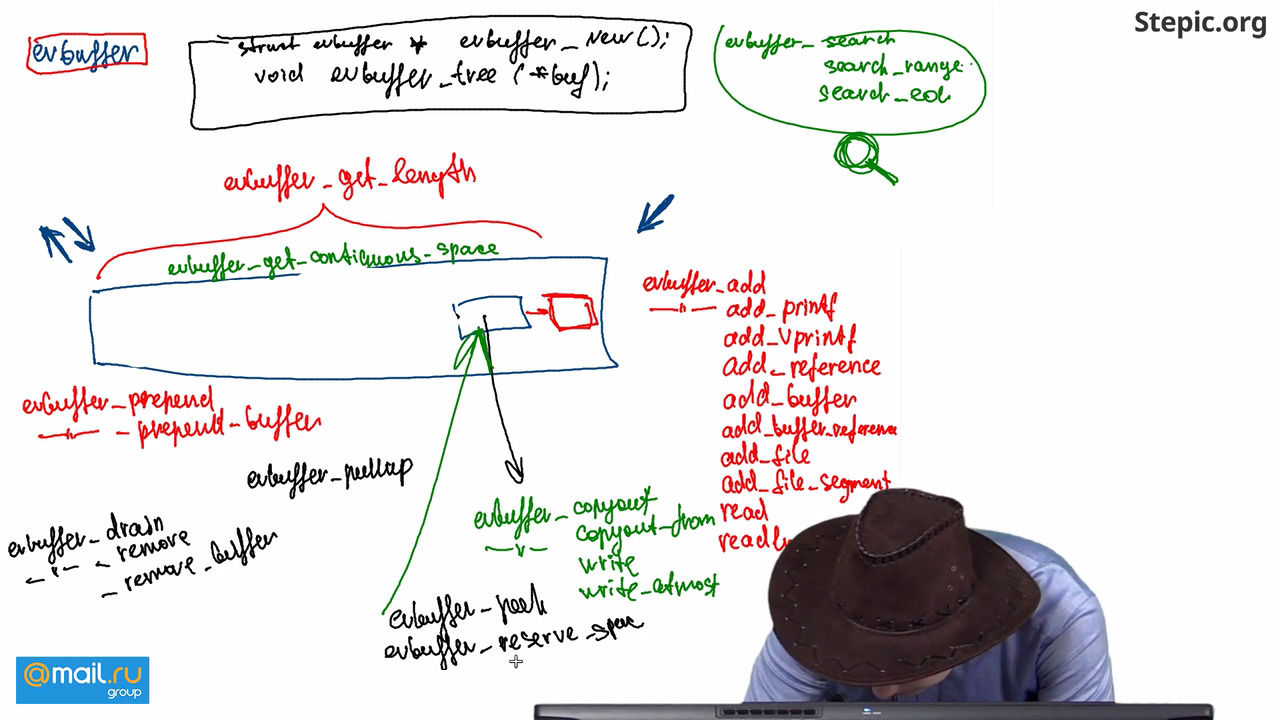 Stepic.org
evbuffer
struct evbuffer * evbuffer_new();
void evbuffer_free (*buf);
evbuffer_search
search_range
search_eol
evbuffer_get_length
evbuffer_get_contiguous_space
evbuffer_add
—"— add_printf
add_vprintf
add_reference
add_buffer
add_buffer_reference
add_file
add_file_segment
read
evbuffer_prepend
—"— _prepend_buffer
evbuffer_pullup
evbuffer_drain
—"— _remove
_remove_buffer
evbuffer_copyout
—"— copyout_from
write
write_atmost
evbuffer_peek
evbuffer_reserve_spac
@mail.ru
group